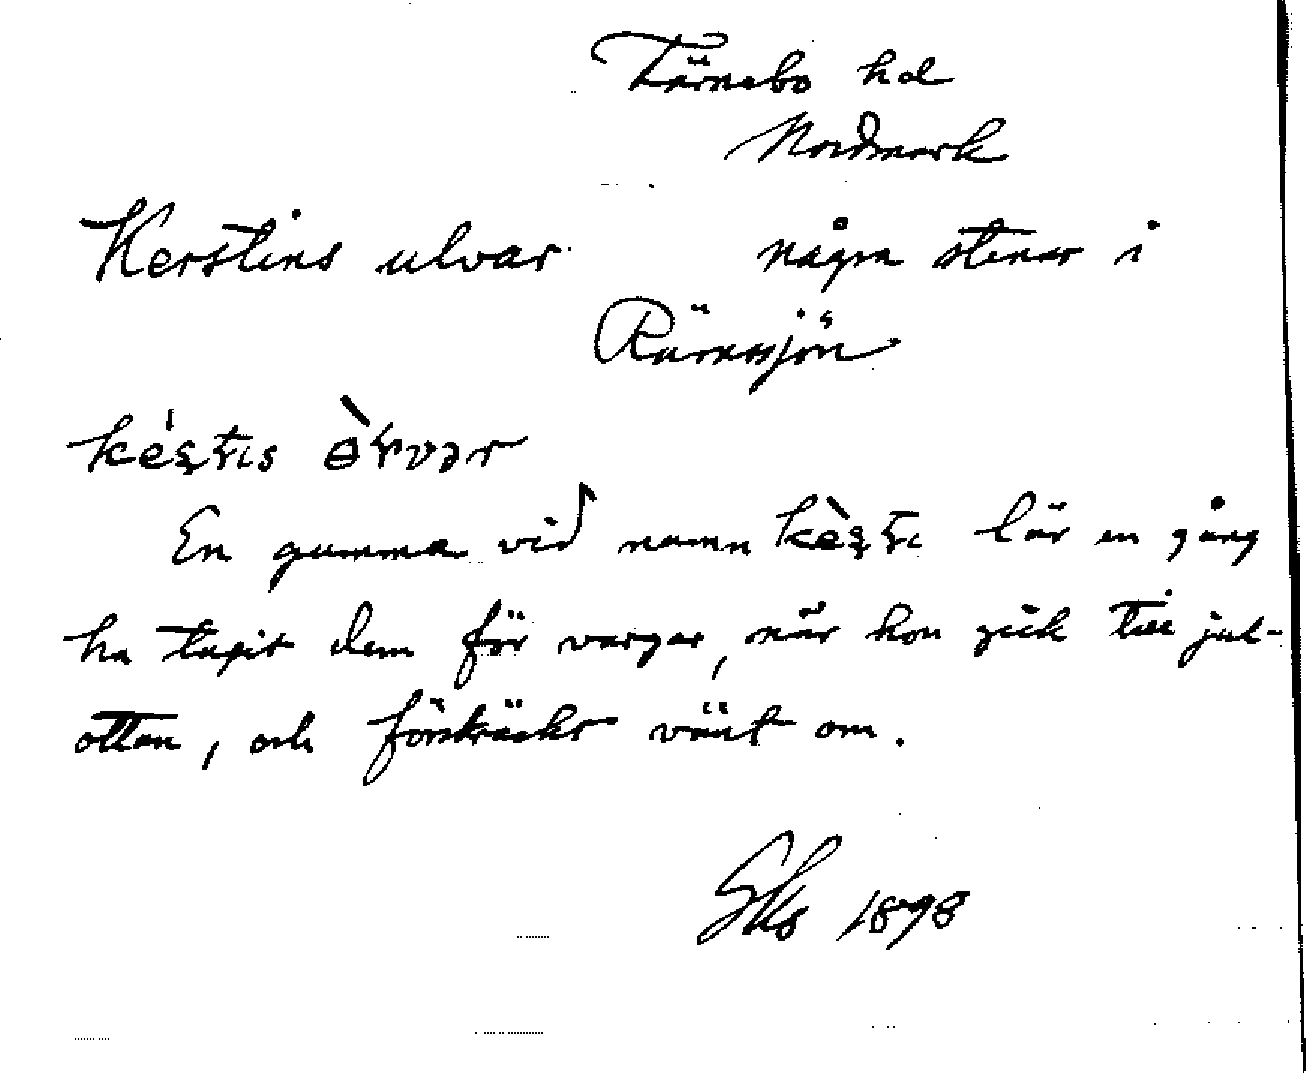 Färnebo hd
Nordmark
Kerstins ulvar några stenar i
Rämsjön
En gumma vid namn lär en gång
ha tagit dem för vargar, när hon gick till jul-
ottan, och förskräckt vänt om.
1898